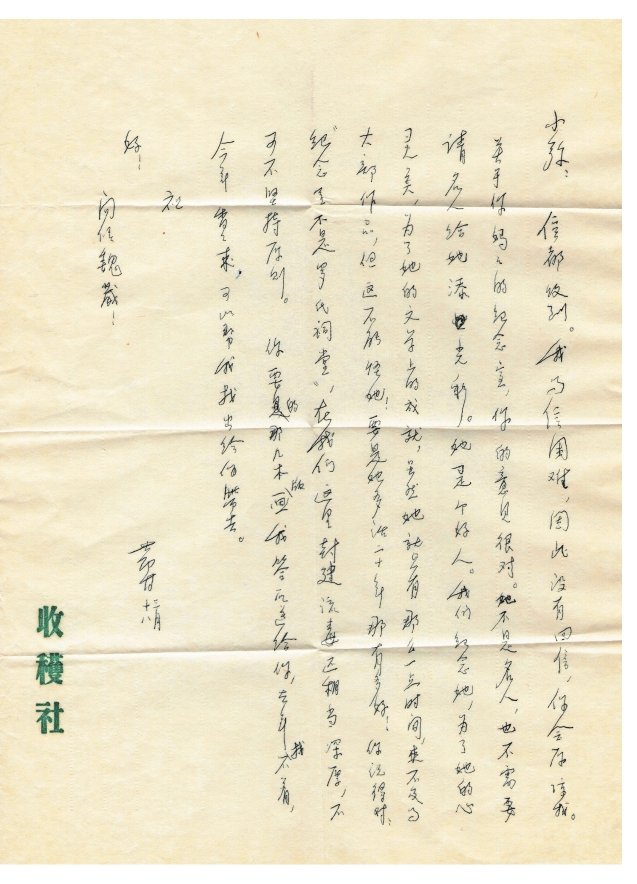 小弥：信都收到。我写信困难，因此没有回信，你会原谅我。
关于你妈妈的纪念室，你的意见很对。她不是名人，也不需要
请名人给她添光彩。她是个好人。我们纪念她，为了她的心
灵美，为了她的文学上的成就，虽然她就只有那么一点时间，来不及写
大部作品，但这不能怪她！要是她多活二十年那有多好！你说得对：
“纪念室不是罗氏祠堂”，在我们这里封建流毒还相当深厚，不
可不坚持原则。 你要的那几本画版我签名送给你，去年找不着，
今年 来，可以帮我找出给你带去。
祝
好！
问候魏 ！
芾甘
收穫社